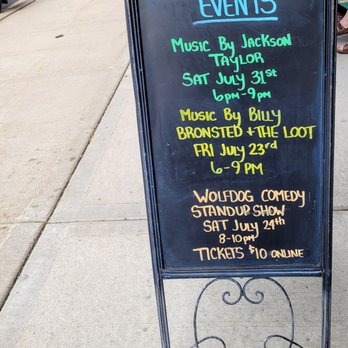 EVENTS
MUSIC BY JACKSON
TAYLOR
SAT JULY 31st
6PM-9PM
MUSIC BY BILLY
BRONSTED + THE LOOT
FRI JULY 23rd
6-9 PM
WOLFDOG COMEDY
STANDUP SHOW
SAT JULY 24th
8-10PM
TICKETS $10 ONLINE